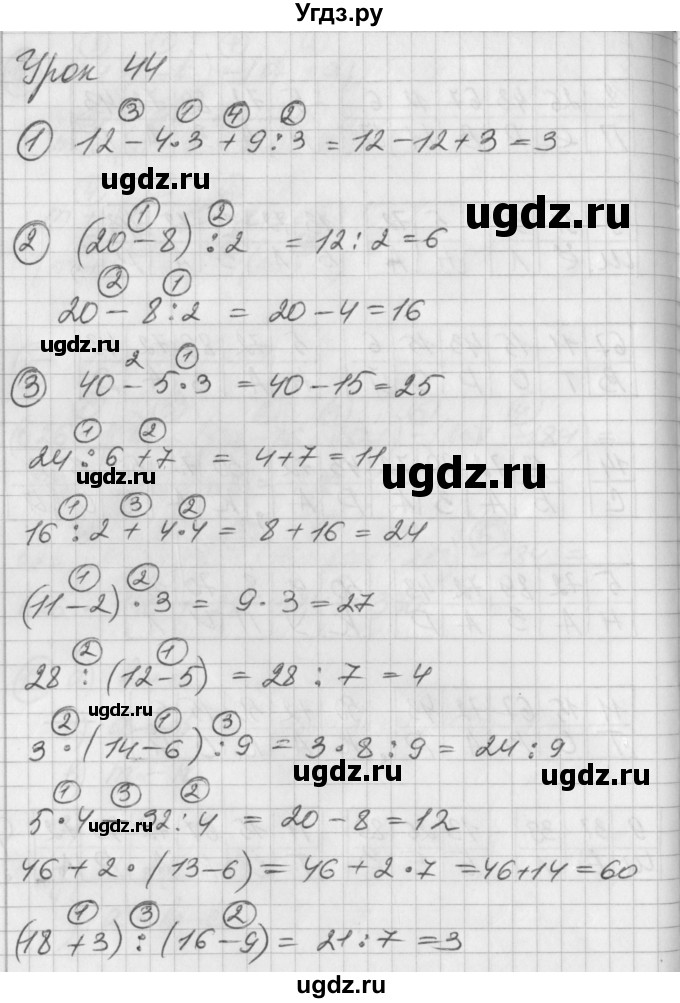 Угдз.ру
Урок 44
③ ① ④ ②
① 12 - 4·3 + 9:3 = 12 - 12 + 3 = 3
ugdz.ru
ugdz.ru
① ②
② (20 - 8) : 2 = 12 : 2 = 6
② ①
20 - 8:2 = 20 - 4 = 16
ugdz.ru
2 ①
③ 40 - 5·3 = 40 - 15 = 25
① ②
24 : 6 + 7 = 4 + 7 = 11
ugdz.ru
① ③ ②
16 : 2 + 4·4 = 8 + 16 = 24
① ②
(11 - 2) · 3 = 9 · 3 = 27
② ①
28 : (12 - 5) = 28 : 7 = 4
ugdz.ru
② ① ③
3 · (14 - 6) : 9 = 3 · 8 : 9 = 24 : 9
ugdz.ru
ugdz.ru
① ③ ②
5·4 - 32:4 = 20 - 8 = 12
ugdz.ru
46 + 2 · (13 - 6) = 46 + 2·7 = 46 + 14 = 60
① ③ ②
(18 + 3) : (16 - 9) = 21 : 7 = 3
ugdz.ru
ugdz.ru